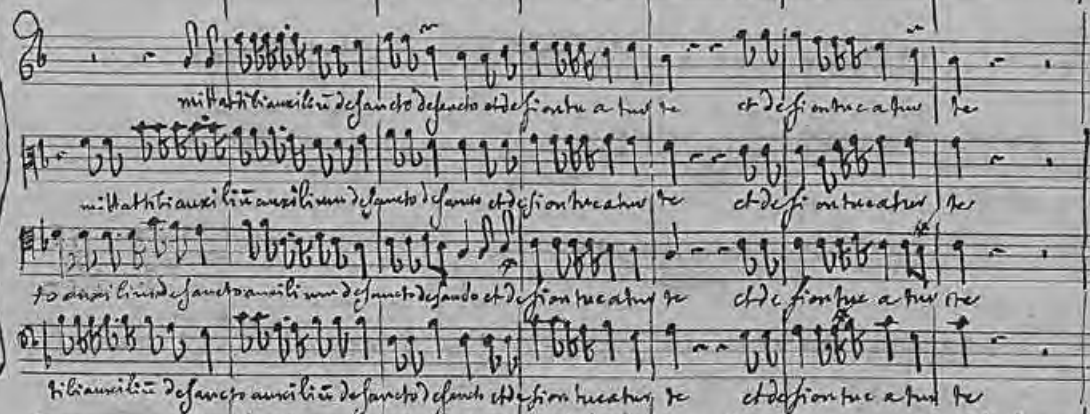 mittat tibi auxiliū de sancto de sancto et de sion tueatur te et de sion tueatur te
mittat tibi auxiliū auxilium de sancto de sancto et de sion tueatur te et de sion tueatur te
to auxilium de sancto auxilium de sancto de sancto et de sion tueatur te et de sion tueatur te
tibi auxiliū de sancto auxiliū de sancto de sancto et de sion tueatur te et de sion tueatur te